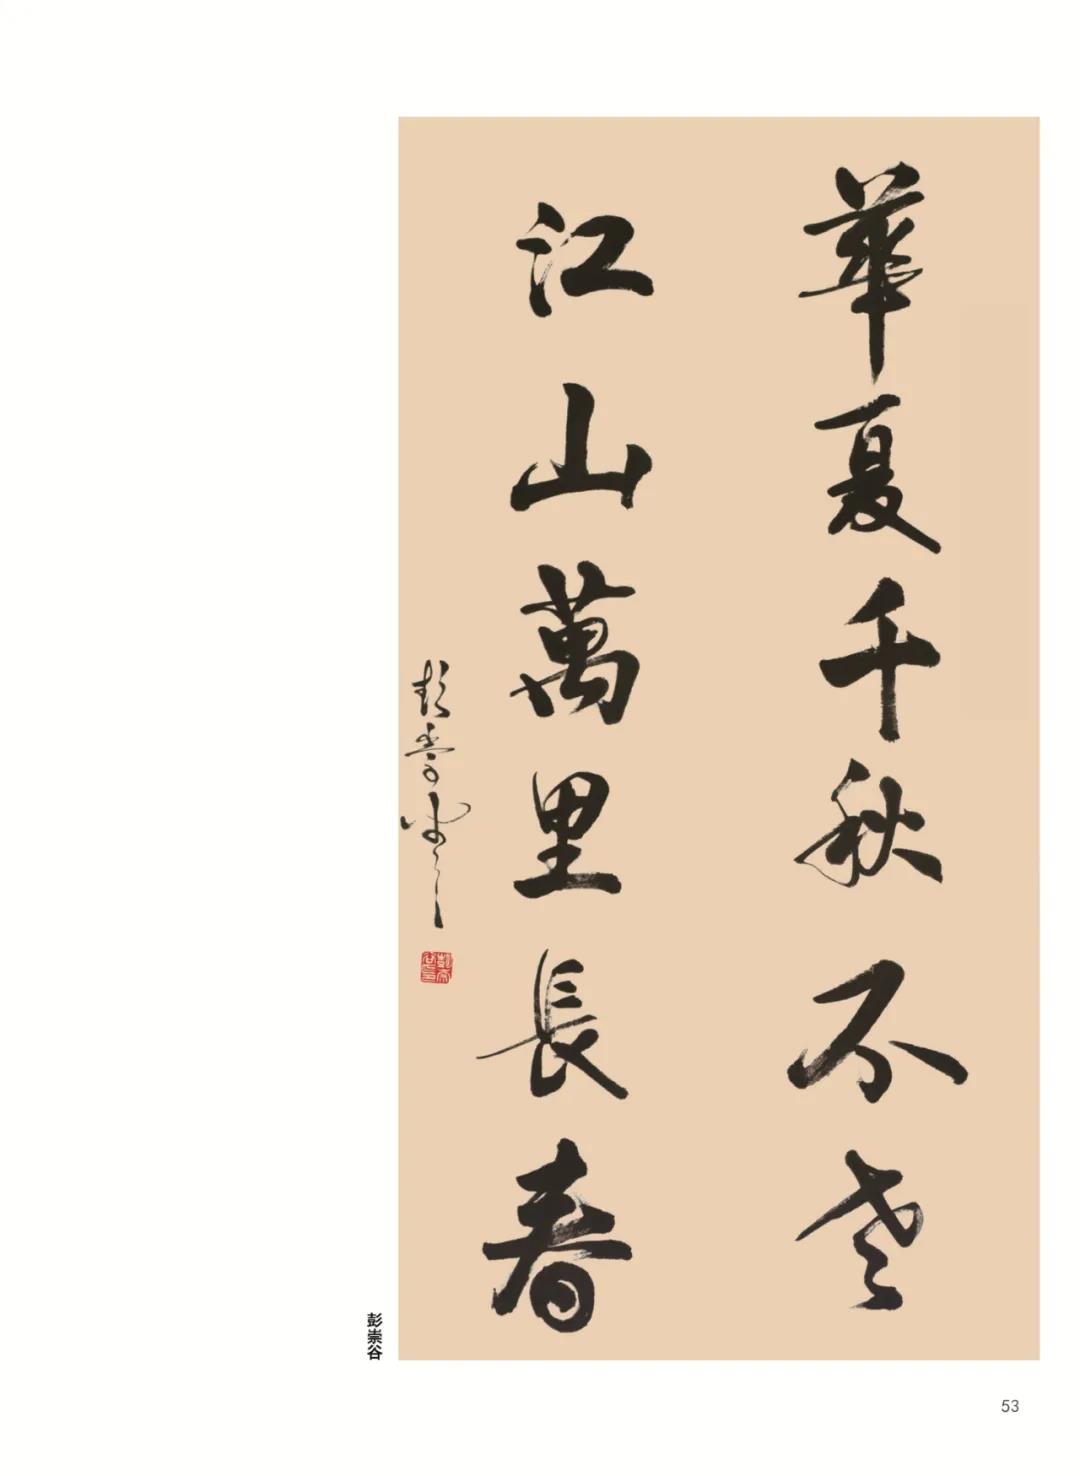 華夏千秋不老
江山萬里長春
彭崇谷
彭崇谷
53